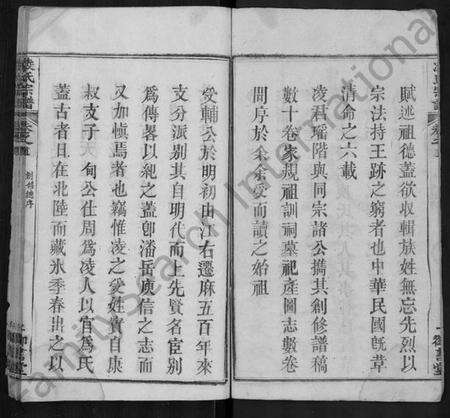 賦述祖德蓋欲收輯族姓無忘先烈以
宗法持王跡之窮者也中華民國旣草
清命之六載
凌君瓛階與同宗諸公擕其創修譜稿
數十卷家規祖訓祠墓祀產圖志數卷
問序於余余受而讀之始祖
受輔公於明初由江右遷麻五百年來
支分派別其自明代而上先賢名宦別
為傳畧以紀之蓋卽潘岳庾信之志而
又加愼焉者也竊惟凌之受姓實自康
叔支子 甸公仕周為凌人以官為氏
蓋古者日在北陸而藏氷季春出之以
凌氏宗譜
卷之首
創修譜序
Family Search International